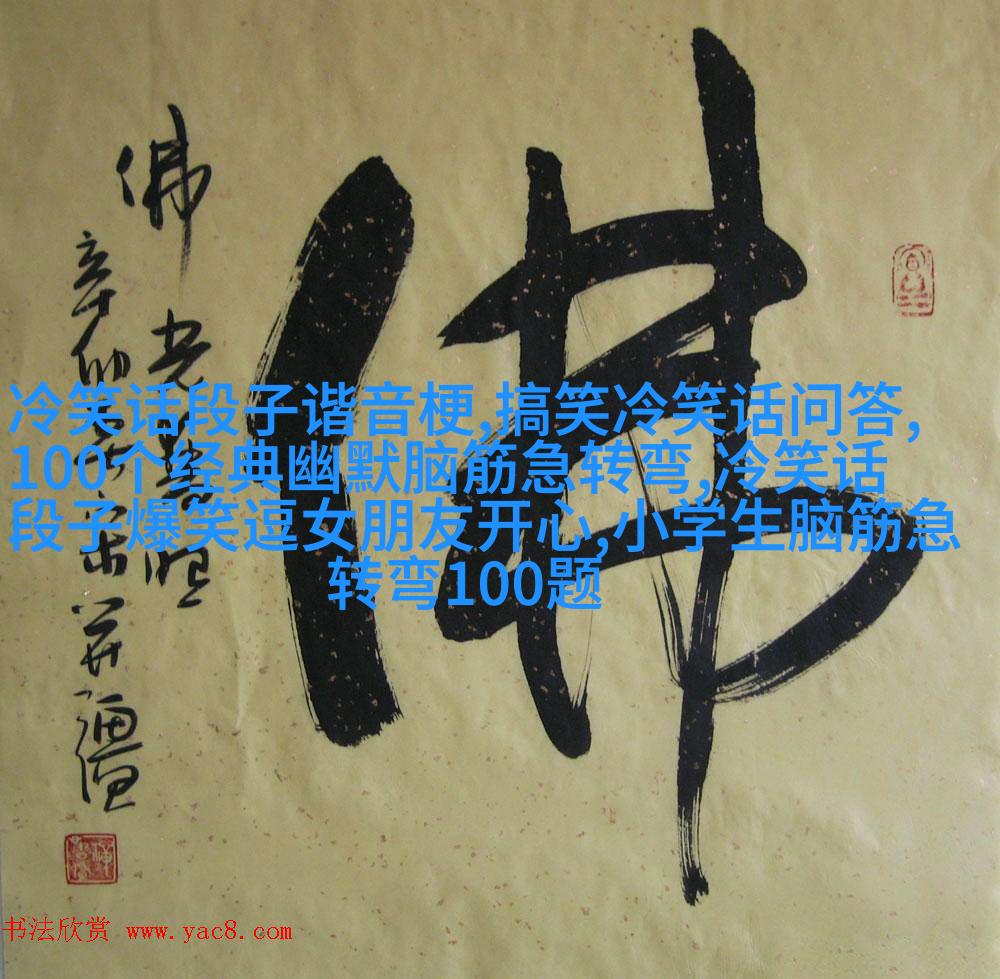 佛
佛光普照
辛卯
冷笑话段子谐音梗,搞笑冷笑话问答,
100个经典幽默脑筋急转弯,冷笑话
段子爆笑逗女朋友开心,小学生脑筋急
转弯100题
书法欣赏 www.yac8.com